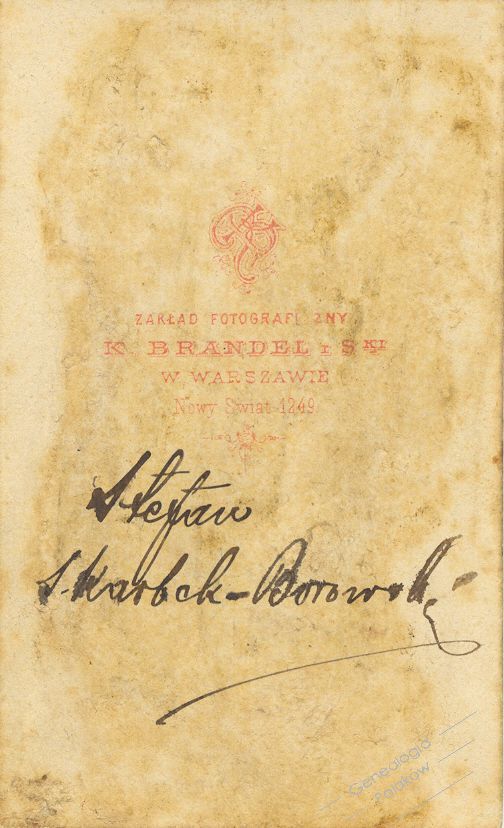 ZAKŁAD FOTOGRAFI ZNY
K. BRANDEL i SKI
W WARSZAWIE
Nowy Świat 1249.
Stefan
Skarbek-Borowski
Genealogia
Polaków